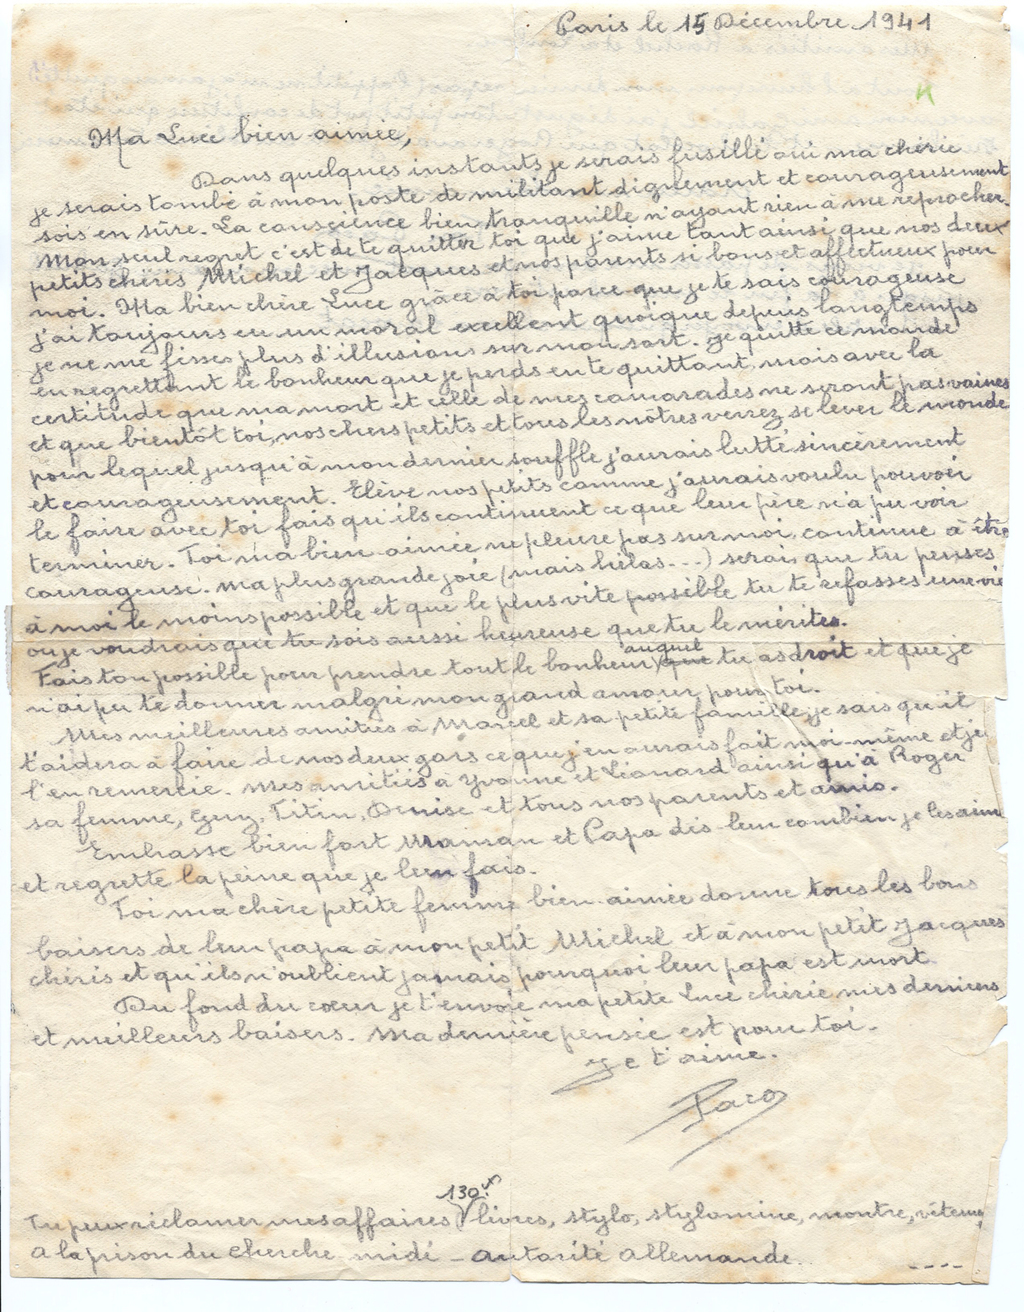 Paris le 15 Décembre 1941
4
Ma Luce bien aimée,
Dans quelques instants je serais fusillé oui ma chérie
je serais tombé à mon poste de militant dignement et courageusement
sois en sûre. La conscience bien tranquille n'ayant rien à me reprocher.
Mon seul regret c'est de te quitter toi que j'aime tant ainsi que nos deux
petits chéris Michel et Jacques et nos parents si bons et affectueux pour
moi. Ma bien chère Luce grâce à toi parce que je te sais courageuse
j'ai toujours eu un moral excellent quoique depuis longtemps
je ne me fisses plus d'illusions sur mon sort. Je quitte ce monde
en regrettant le bonheur que je perds en te quittant, mais avec la
certitude que ma mort et celle de mes camarades ne seront pas vaines
et que bientôt toi, nos chers petits et tous les nôtres verrez se lever le monde
pour lequel jusqu'à mon dernier souffle j'aurais lutté sincèrement
et courageusement. Elève nos petits comme j'aurais voulu pouvoir
le faire avec toi fais qu'ils continuent ce que leur père n'a pu voir
terminer. Toi ma bien-aimée ne pleure pas sur moi, continue à être
courageuse. Ma plus grande joie (mais hélas...) serai que tu penses
à moi le moins possible et que le plus vite possible tu te refasses une vie
ou je voudrais que tu sois aussi heureuse que tu le mérites.
Fais ton possible pour prendre tout le bonheur auquel tu as droit et que je
n'ai pu te donner malgré mon grand amour pour toi.
Mes meilleures amitiés à Marcel et sa petite famille, je sais qu'il
t'aidera à faire de nos deux gars ce que j'en aurais fait moi-même et je
l'en remercie. Mes amitiés à Yvonne et Léonard ainsi qu'à Roger
sa femme, Guy, Titin, Denise et tous nos parents et amis.
Embrasse bien fort Maman et Papa dis leur combien je les aime
et regrette la peine que je leur fais.
Toi ma chère petite femme bien-aimée donne tous les bons
baisers de leur papa à mon petit Michel et à mon petit Jacques
chéris et qu'ils n'oublient jamais pourquoi leur papa est mort.
Du fond du cœur je t'envoie ma petite Luce chérie mes derniers
et meilleurs baisers. Ma dernière pensée est pour toi.
Je t'aime.
Paco
Tu peux réclamer mes affaires 130f. livres, stylo, stylomine, montre,
a la prison du cherche-midi - autorité allemande....